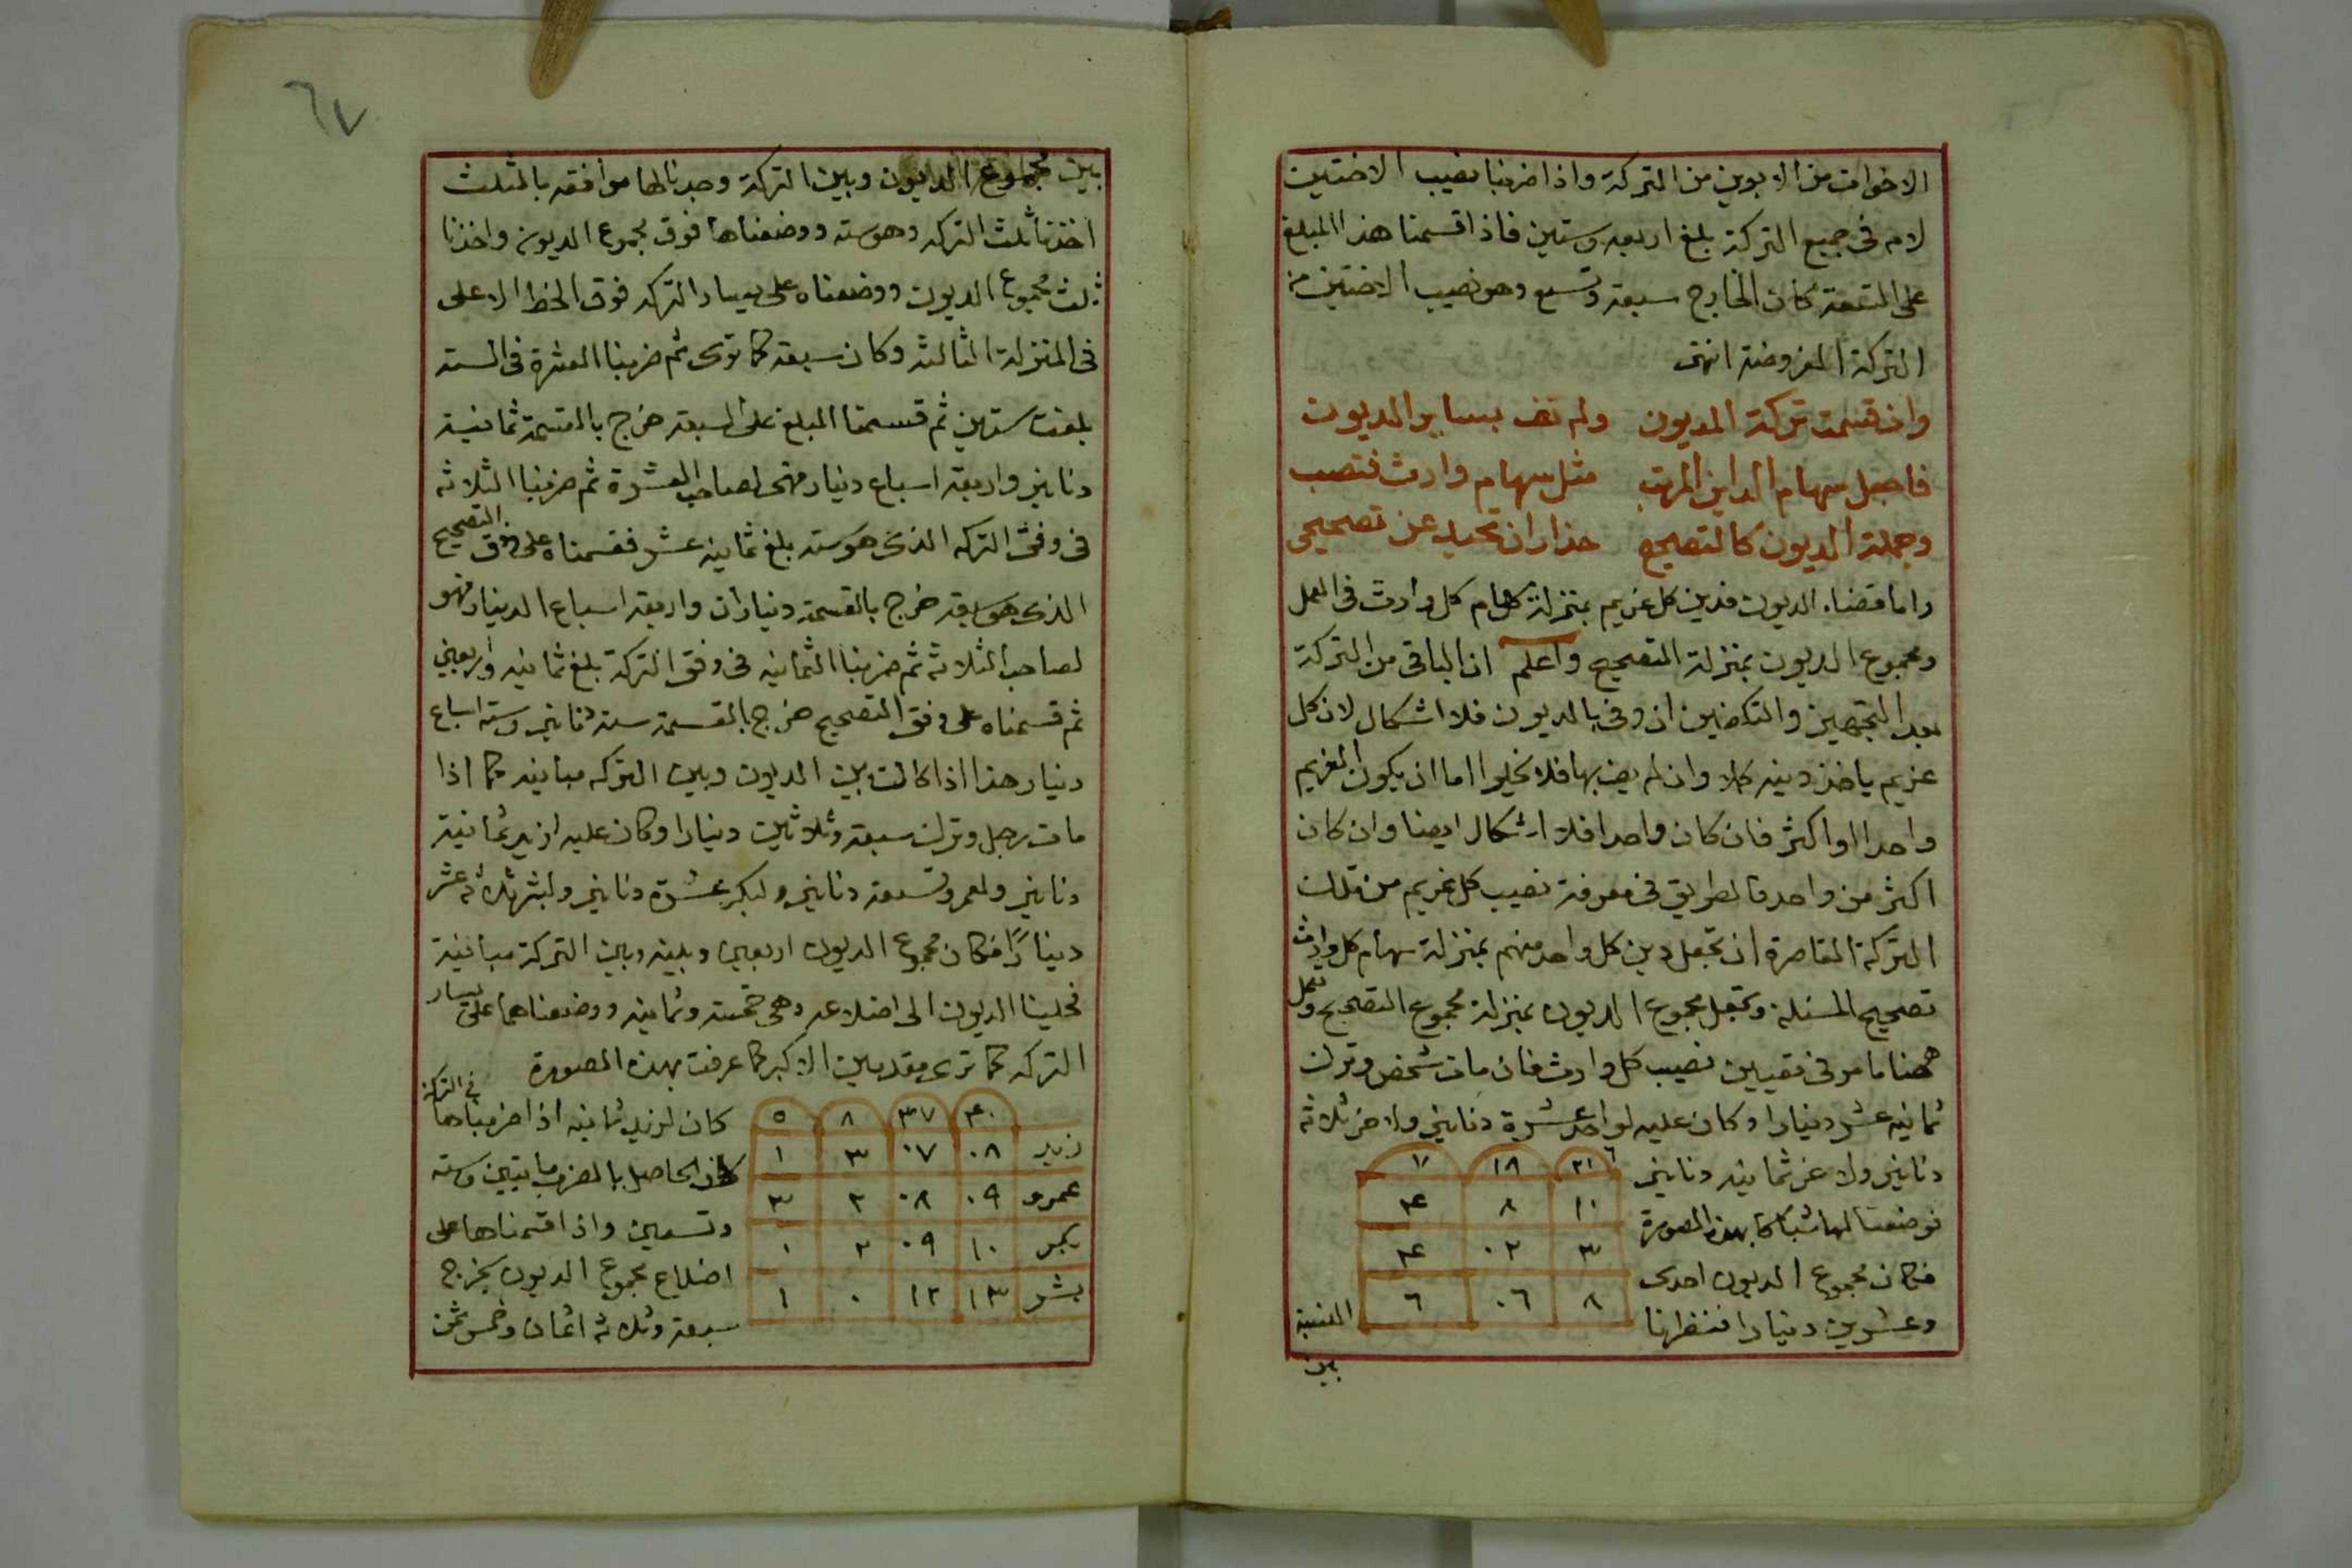 الاخوات من الابوين من التركة واذا ضربنا نصيب الاختين
لام فى جميع التركة بلغ اربعه وستين فاذا قسمنا هذا المبلغ
على التسعة كان الخارج سبعة وتسع وهو نصيب الاختين من
التركة المفروضة انتهى
وان قسمت تركة المديون ولم تف بساير الديون
فاجعل سهام الداين المرتب مثل سهام وارث فتصب
وجملة الديون كالتصحيح حذار ان تحيد عن تصحيحى
واما قضاء الديون فدين كل غريم بمنزلة سهام كل وارث فى العمل
ومجموع الديون بمنزلة التصحيح واعلم ان الباقى من التركة
بعد التجهيز والتكفين ان وفى بالديون فلا اشكال لان كل
غريم ياخذ دينه كلا وان لم يف بها فلا يخلوا اما ان يكون الغريم
واحدا او اكثر فان كان واحدا فلا اشكال ايضا وان كان
اكثر من واحد فالطريق فى معرفة نصيب كل غريم من تلك
التركة القاصرة ان تجعل دين كل واحد منهم بمنزلة سهام كل وارث
تصحيح المسئلة وتجعل مجموع الديون بمنزلة مجموع التصحيح وتعمل
ههنا ما مر فى تعيين نصيب كل وارث فان مات شخص وترك
ثمانيه عشر دينارا وكان عليه لواحد عشرة دنانير ولاخر ثلاثه
دنانير ولاخر ثمانيه دنانير
فوضعنا لها شباكا بهذه الصورة
فكان مجموع الديون احدى
وعشرين دينارا فنظرنا
٦
٢١ ١٨ ٧
١٠ ٨ ٤
٣ ٠٢ ٤
٨ ٠٦ ٦
النسبة
بين
٦٧
بين مجموع الديون وبين التركة وجدنا لها موافقه بالثلث
اخذنا ثلث التركه وهو سته ووضعناها فوق مجموع الديون واخذنا
ثلث مجموع الديون ووضعناه على يسار التركه فوق الخط الاعلى
فى المنزلة الثالثه وكان سبعة كما ترى ثم ضربنا العشرة فى الستة
بلغت ستين ثم قسمنا المبلغ على السبعة خرج بالقسمة ثمانية
دنانير واربعة اسباع دينار فهى لصاحب العشرة ثم ضربنا الثلاثه
فى وفق التركه الذى هو سته بلغ ثمانيه عشر فقسمناه على وفق التصحيح
الذى هو سبعة خرج بالقسمة ديناران واربعة اسباع الدينار فهو
لصاحب الثلاثه ثم ضربنا الثمانيه فى وفق التركة بلغ ثمانيه واربعين
ثم قسمناه على وفق التصحيح خرج بالقسمة ستة دنانير وسته اسباع
دينار هذا اذا كانت بين الديون وبين التركه مباينه كما اذا
مات رجل وترك سبعة وثلاثين دينارا وكان عليه لزيد ثمانية
دنانير ولعمرو تسعة دنانير ولبكر عشرة دنانير ولبشر ثلاثه عشر
دينارًا فكان مجموع الديون اربعين وبينه وبين التركة مباينة
فحلينا الديون الى اضلاعه وهى خمسة وثمانيه ووضعناهما على يسار
التركه كما ترى مقدمين الاكبر كما عرفت بهذه الصورة
٤٠ ٣٧ ٨ ٥
زيد ٠٨ ٠٧ ٣ ١
عمرو ٠٩ ٠٨ ٢ ٣
بكر ١٠ ٠٩ ٢ ٠
بشر ١٣ ١٢ ٠ ١
كان لزيد ثمانيه اذا ضربناها فى التركة
كان الحاصل بالضرب مايتين وسته
وتسعين واذا قسمناها على
اضلاع مجموع الديون يخرج
سبعة وثلاثه اثمان وخمس ثمن